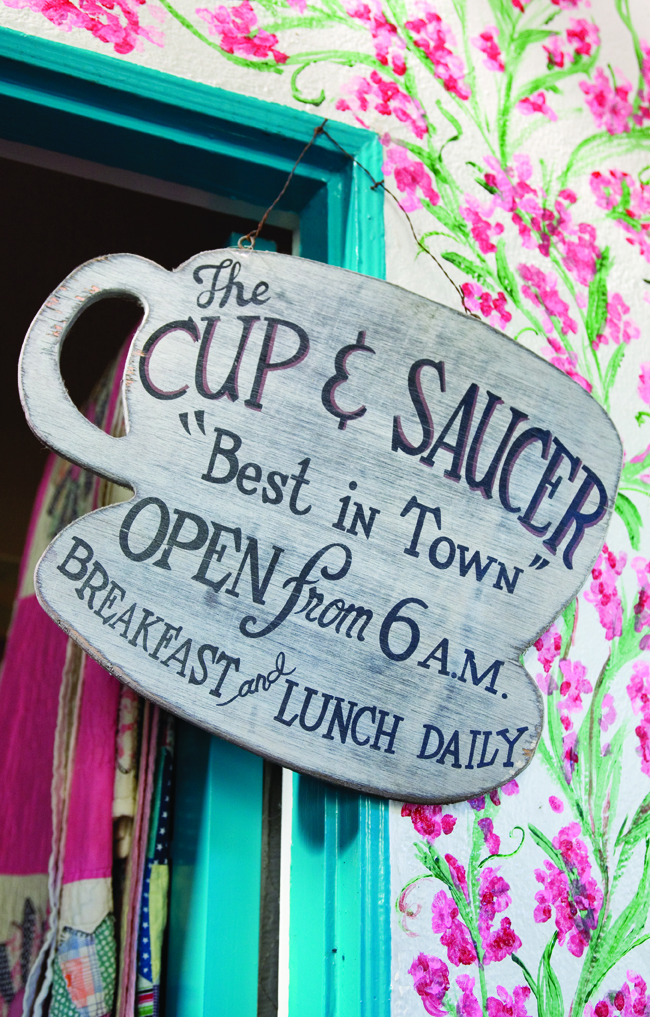 The
CUP & SAUCER
"Best in Town"
OPEN from 6 A.M.
BREAKFAST and LUNCH DAILY